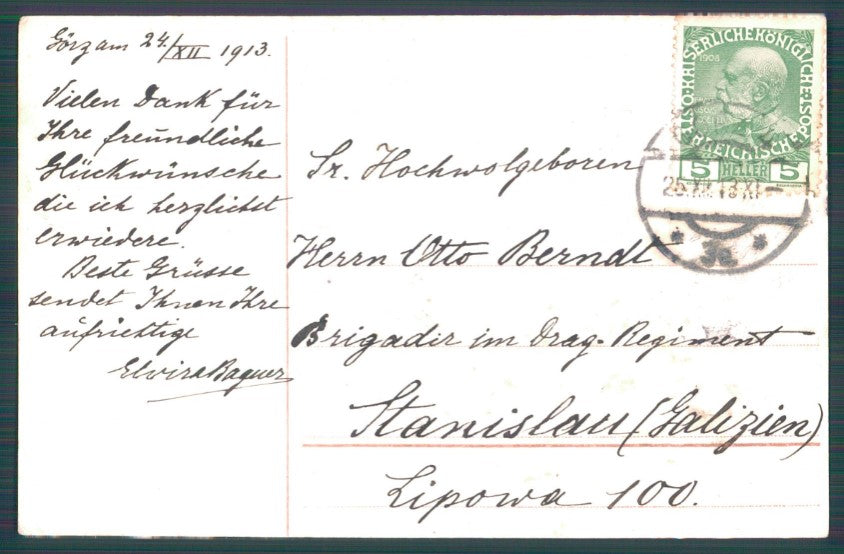 Görz am 24./XII 1913.
Vielen Dank für
Ihre freundliche
Glückwünsche
die ich herzlichst
erwiedere.
Beste Grüsse
sendet Ihnen Ihre
aufrichtige
Elvira
Sr. Hochwolgeboren
Herrn Otto Berndt
Brigadir im Drag-Regiment
Stanislau (Galizien)
Lipowa 100.
KAISERLICHEKÖNIGLICHE
1908
5 HELLER 5
25.XII.13.XI-
* 3a *